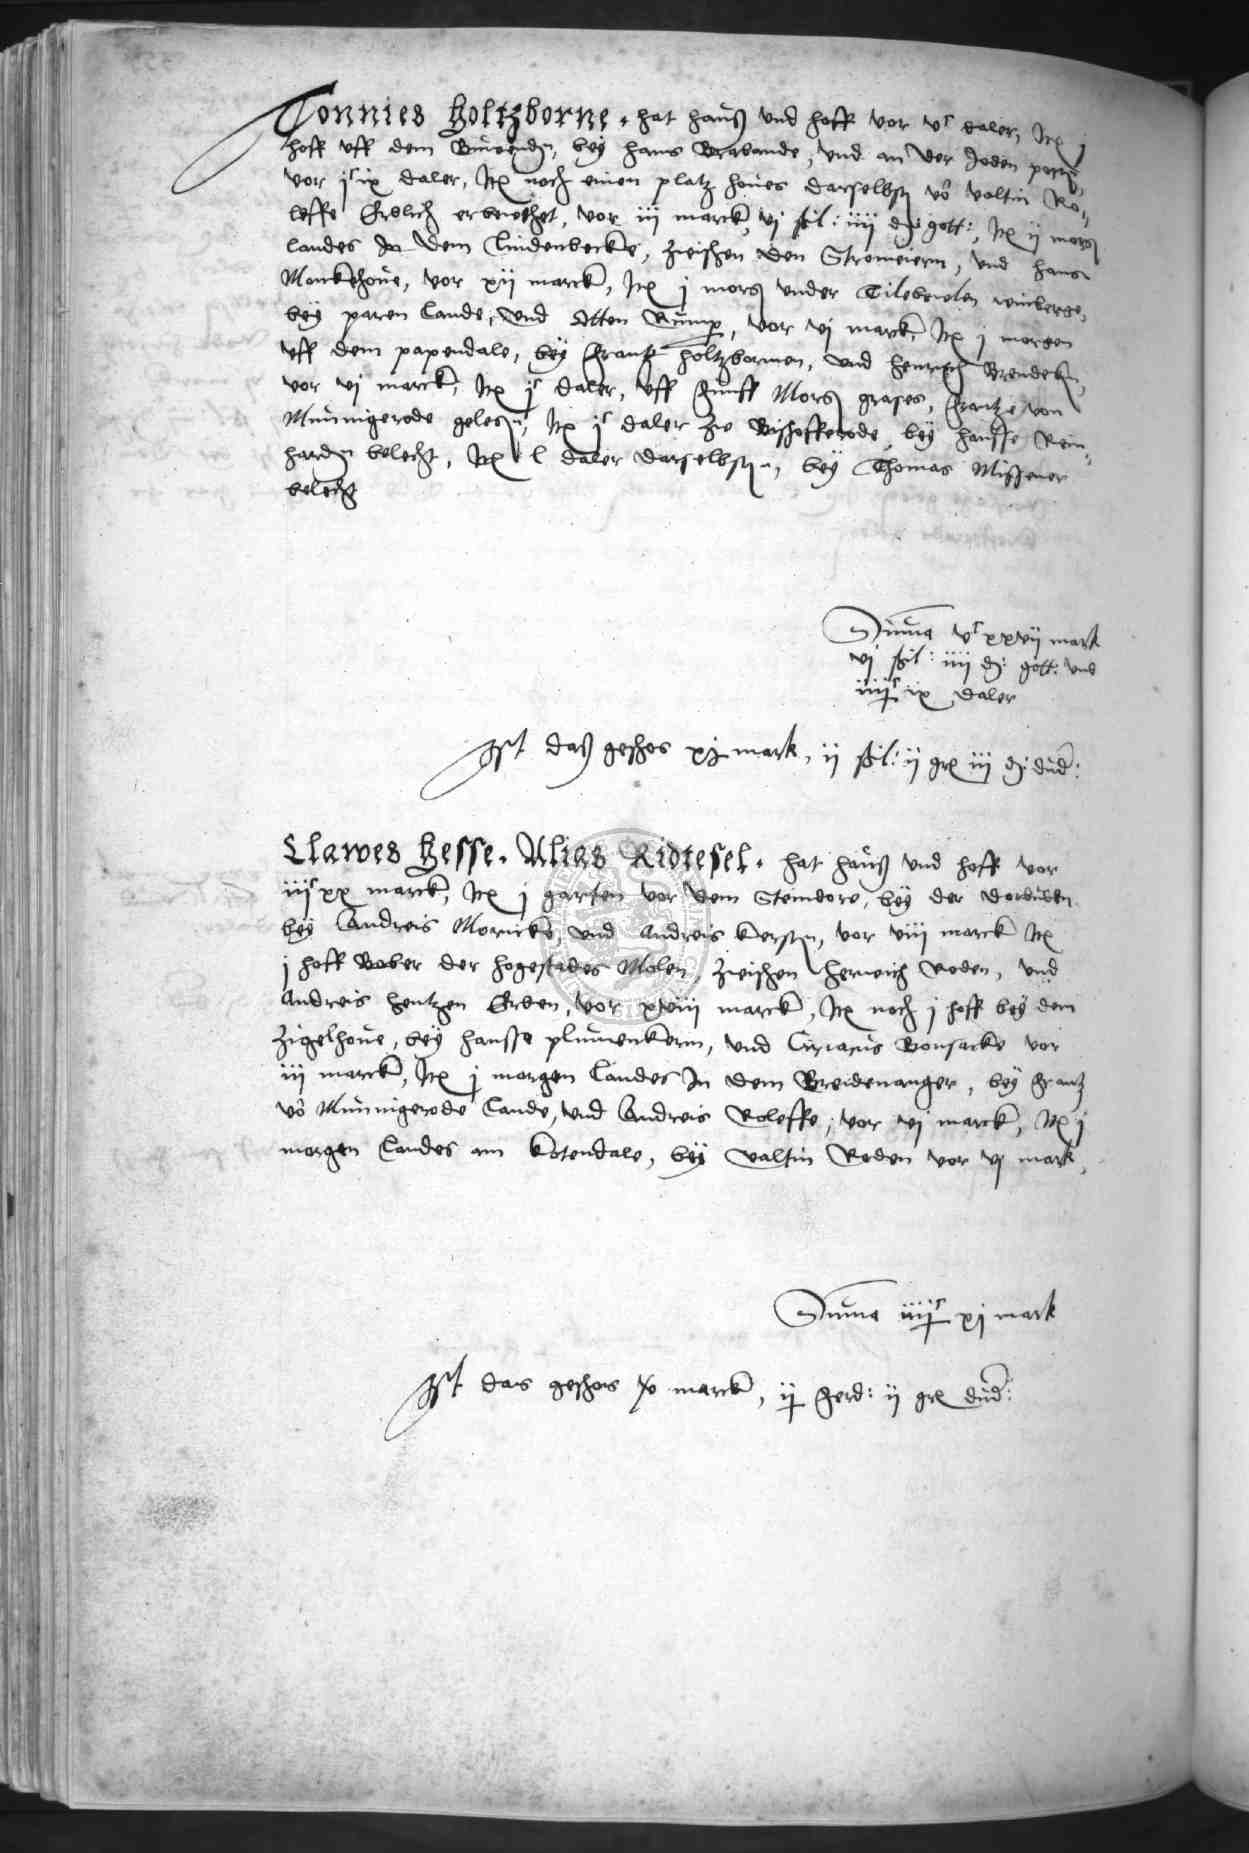 Tonnies Holtzborne. hat hauß vnd hoff vor vᶜ daler, Itē j
hoff vff dem bey hans Brabande, vnd an der Joden
vor jᶜ ix daler, Itē noch einen platz houes darselbst vō valtin Ro-
leffe Erblich vor iii marck, vj ßil: iiii d: gott:, Itē ij morgē
landes In dem Lindenbecke, zwischen den Stromeiern, vnd hans
Monkehoue, vor xij marck, Itē j morgē vnder winberge,
bey paren Lande, vnd Otten Rump, vor vj marck, Itē j morgen
vff dem papendale, bey Frantz Holtzbornen, vnd Henrich
vor vj marck, Itē jᶜ daler, vff Funff Morgē grases, Frantze von
Minnigerode gelegē, Itē jᶜ daler zw Bischofferode, bey Hansse Rein-
hardē belecht, Itē l daler darselbst, bey Thomas Missener
belecht
Suma vᶜ xxvij mark
vj ßil: iiij d: gott: vnd
ix daler
Ist daß geschos mark, ij ßil: ij grē iij d: dud:
Clawes Hesse. Alias Ridtesel. hat hauß vnd hoff vor
iiiᶜ xx marck, Itē j garten vor dem Steindore, bey der
bey Andreis Moricke, vnd Andreis Kerstē, vor viii marck Itē
j hoff Bober der hogestades Molen, zwischen Herwich Roden, vnd
Andreis Hentzen Erben, vor xviii marck, Itē noch j hoff bey dem
Zigelhoue, bey Hansse plumenkern, vnd Ciriacus Bonsacke vor
iii marck, Itē j morgen Landes In dem Breidenanger, bey Frantz
vō Minnigerode Lande, vnd Andreis Roleffe, vor vj marck, Itē j
morgen Landes am Kotendale, bey valtin Roden vor vj mark,
Suma iiijᶜ xj mark
Ist das geschos marck, ij ferd: ij grē dud: